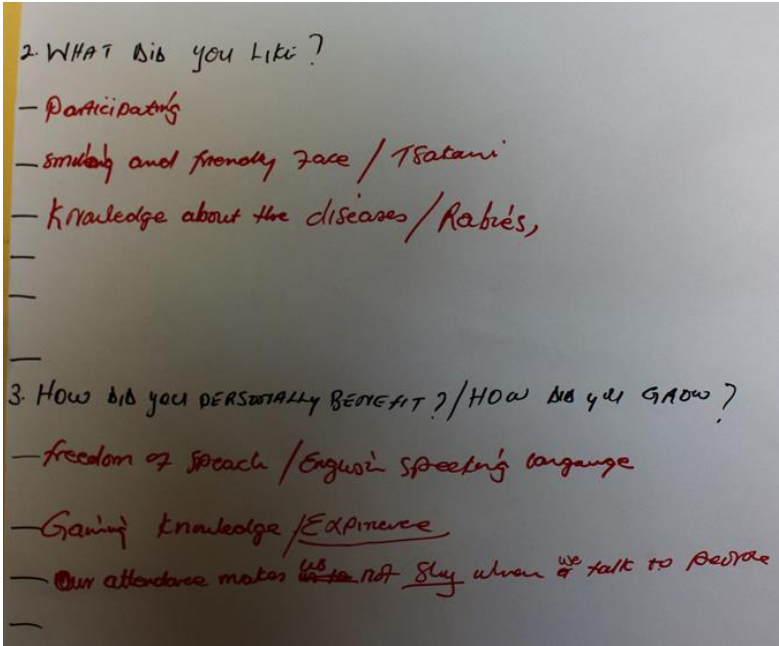 2. WHAT DID you LIKE?
- Participating
- smiling and friendly face / Tsatani
- Knowledge about the diseases / Rabies,
-
-
-
3. HOW DID you PERSONALLY BENEFIT? / HOW DID you GROW?
- freedom of speach / English speeking langauge
- Gaining knowledge / Expirience
- Our attendance makes us not shy when we talk to people
-